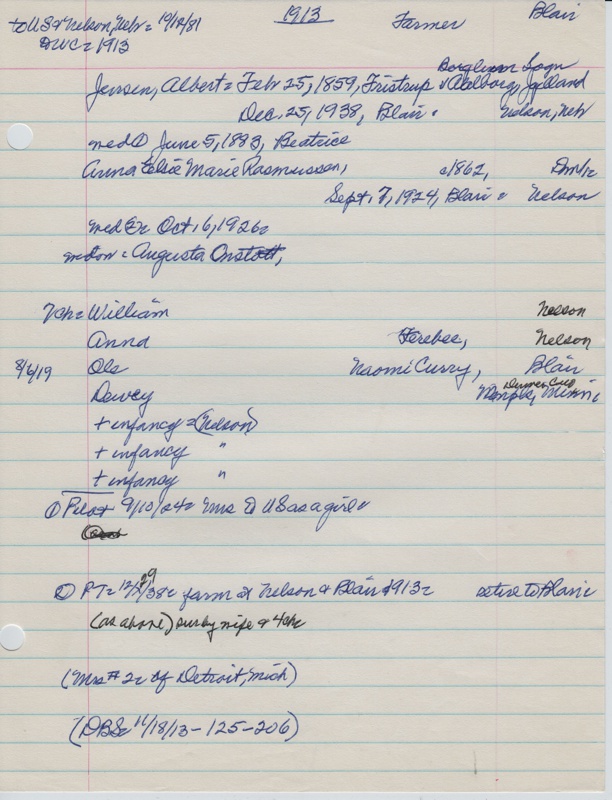 1913 Farmer Blair
to US & Nelson, Nebr = 10/12/81
DWC = 1913
Jensen, Albert = Feb 25, 1859, Fristrup, Aalborg, Jylland
Dec. 25, 1938, Blair. Nelson, Nebr
med① June 5, 1883, Beatrice
Anna Elsie Marie Rasmussen, c1862, Dm/c
Sept. 7, 1924, Blair = Nelson
med② = Oct 16, 1926 =
Augusta Onstott,
7ch = William Nelson
Anna Ferebee, Nelson
8/6/19 Ole Naomi Curry, Blair
Dewey Denver Colo
Mpls, Minn
+ infancy = (Nelson)
+ infancy "
+ infancy "
① Pilot 9/10/24 = Mrs to US as a girl
② PT = 12/29/38 = farm at Nelson & Blair 1913 = retire to Blair =
(as above) sur by wife & 4ch =
(Mrs #2 = of Detroit, Mich)
(DBS = 11/18/13 - 125-206)